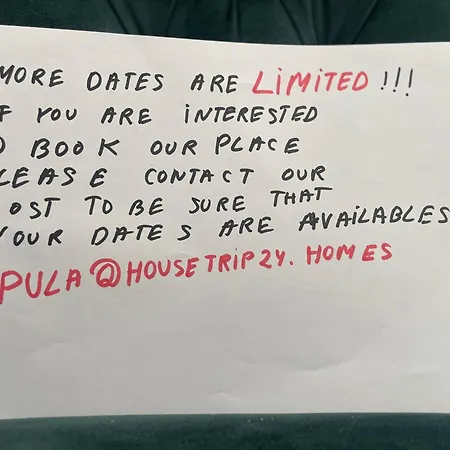 MORE DATES ARE LiMiTED!!!
F YOU ARE iNTERESTED
O BOOK OUR PLACE
LEASE CONTACT OUR
OST TO BE SURE THAT
YOUR DATES ARE AVAiLABLES
PULA@HOUSETRIP24.HOMES